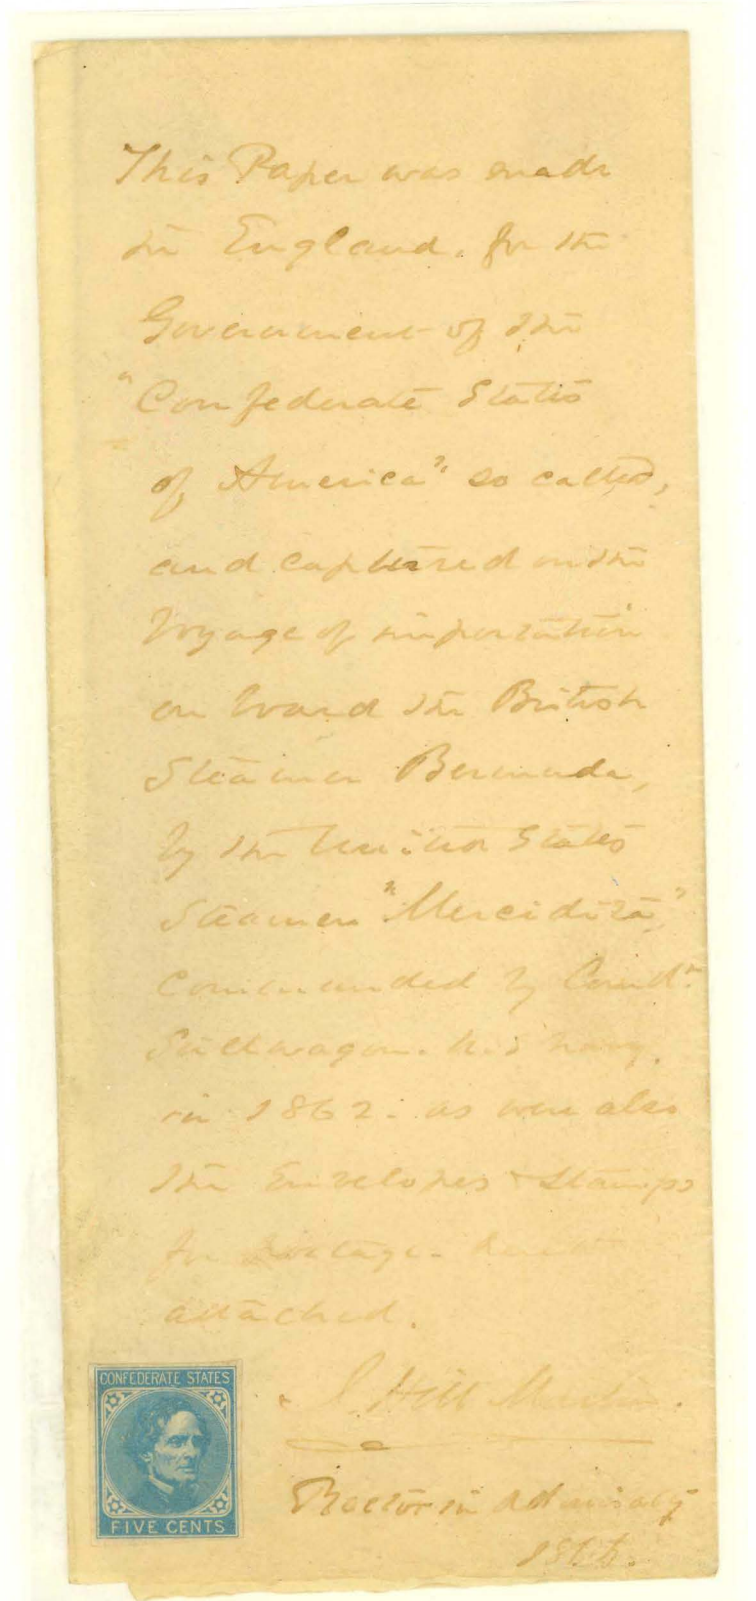 This Paper was made
in England, for the
Government of the
"Confederate States
of America" so called,
and captured on the
Voyage of importation
on board the British
Steamer Bermuda,
by the United States
Steamer "Mercidita,"
Commanded by Comdr.
Stellwagon. U.S Navy,
in 1862. as were also
the Envelopes & Stamps
for postage. 
attached.
J. Hill Martin.
in Admiralty
CONFEDERATE STATES
FIVE CENTS